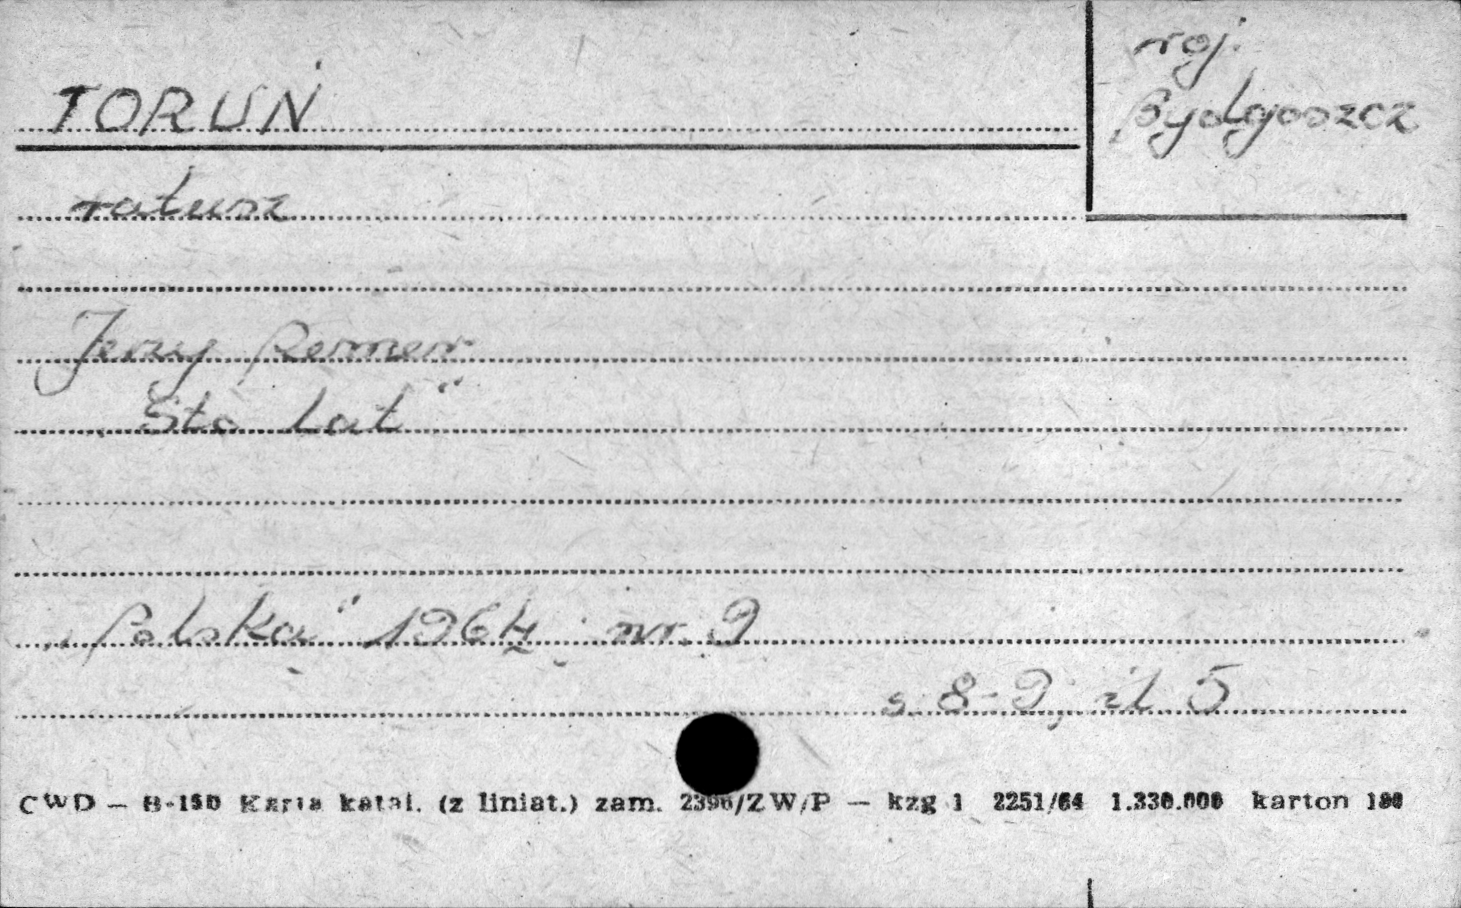 TORUŃ
woj.
Bydgoszcz
ratusz
Jerzy Remer
„Sto lat"
„Polska" 1964 nr. 9
s. 8-9, il. 5
CWD — B-150 Karta katal. (z liniat.) zam. 2396/ZW/P — kzg 1 2251/64 1.330.000 karton 180